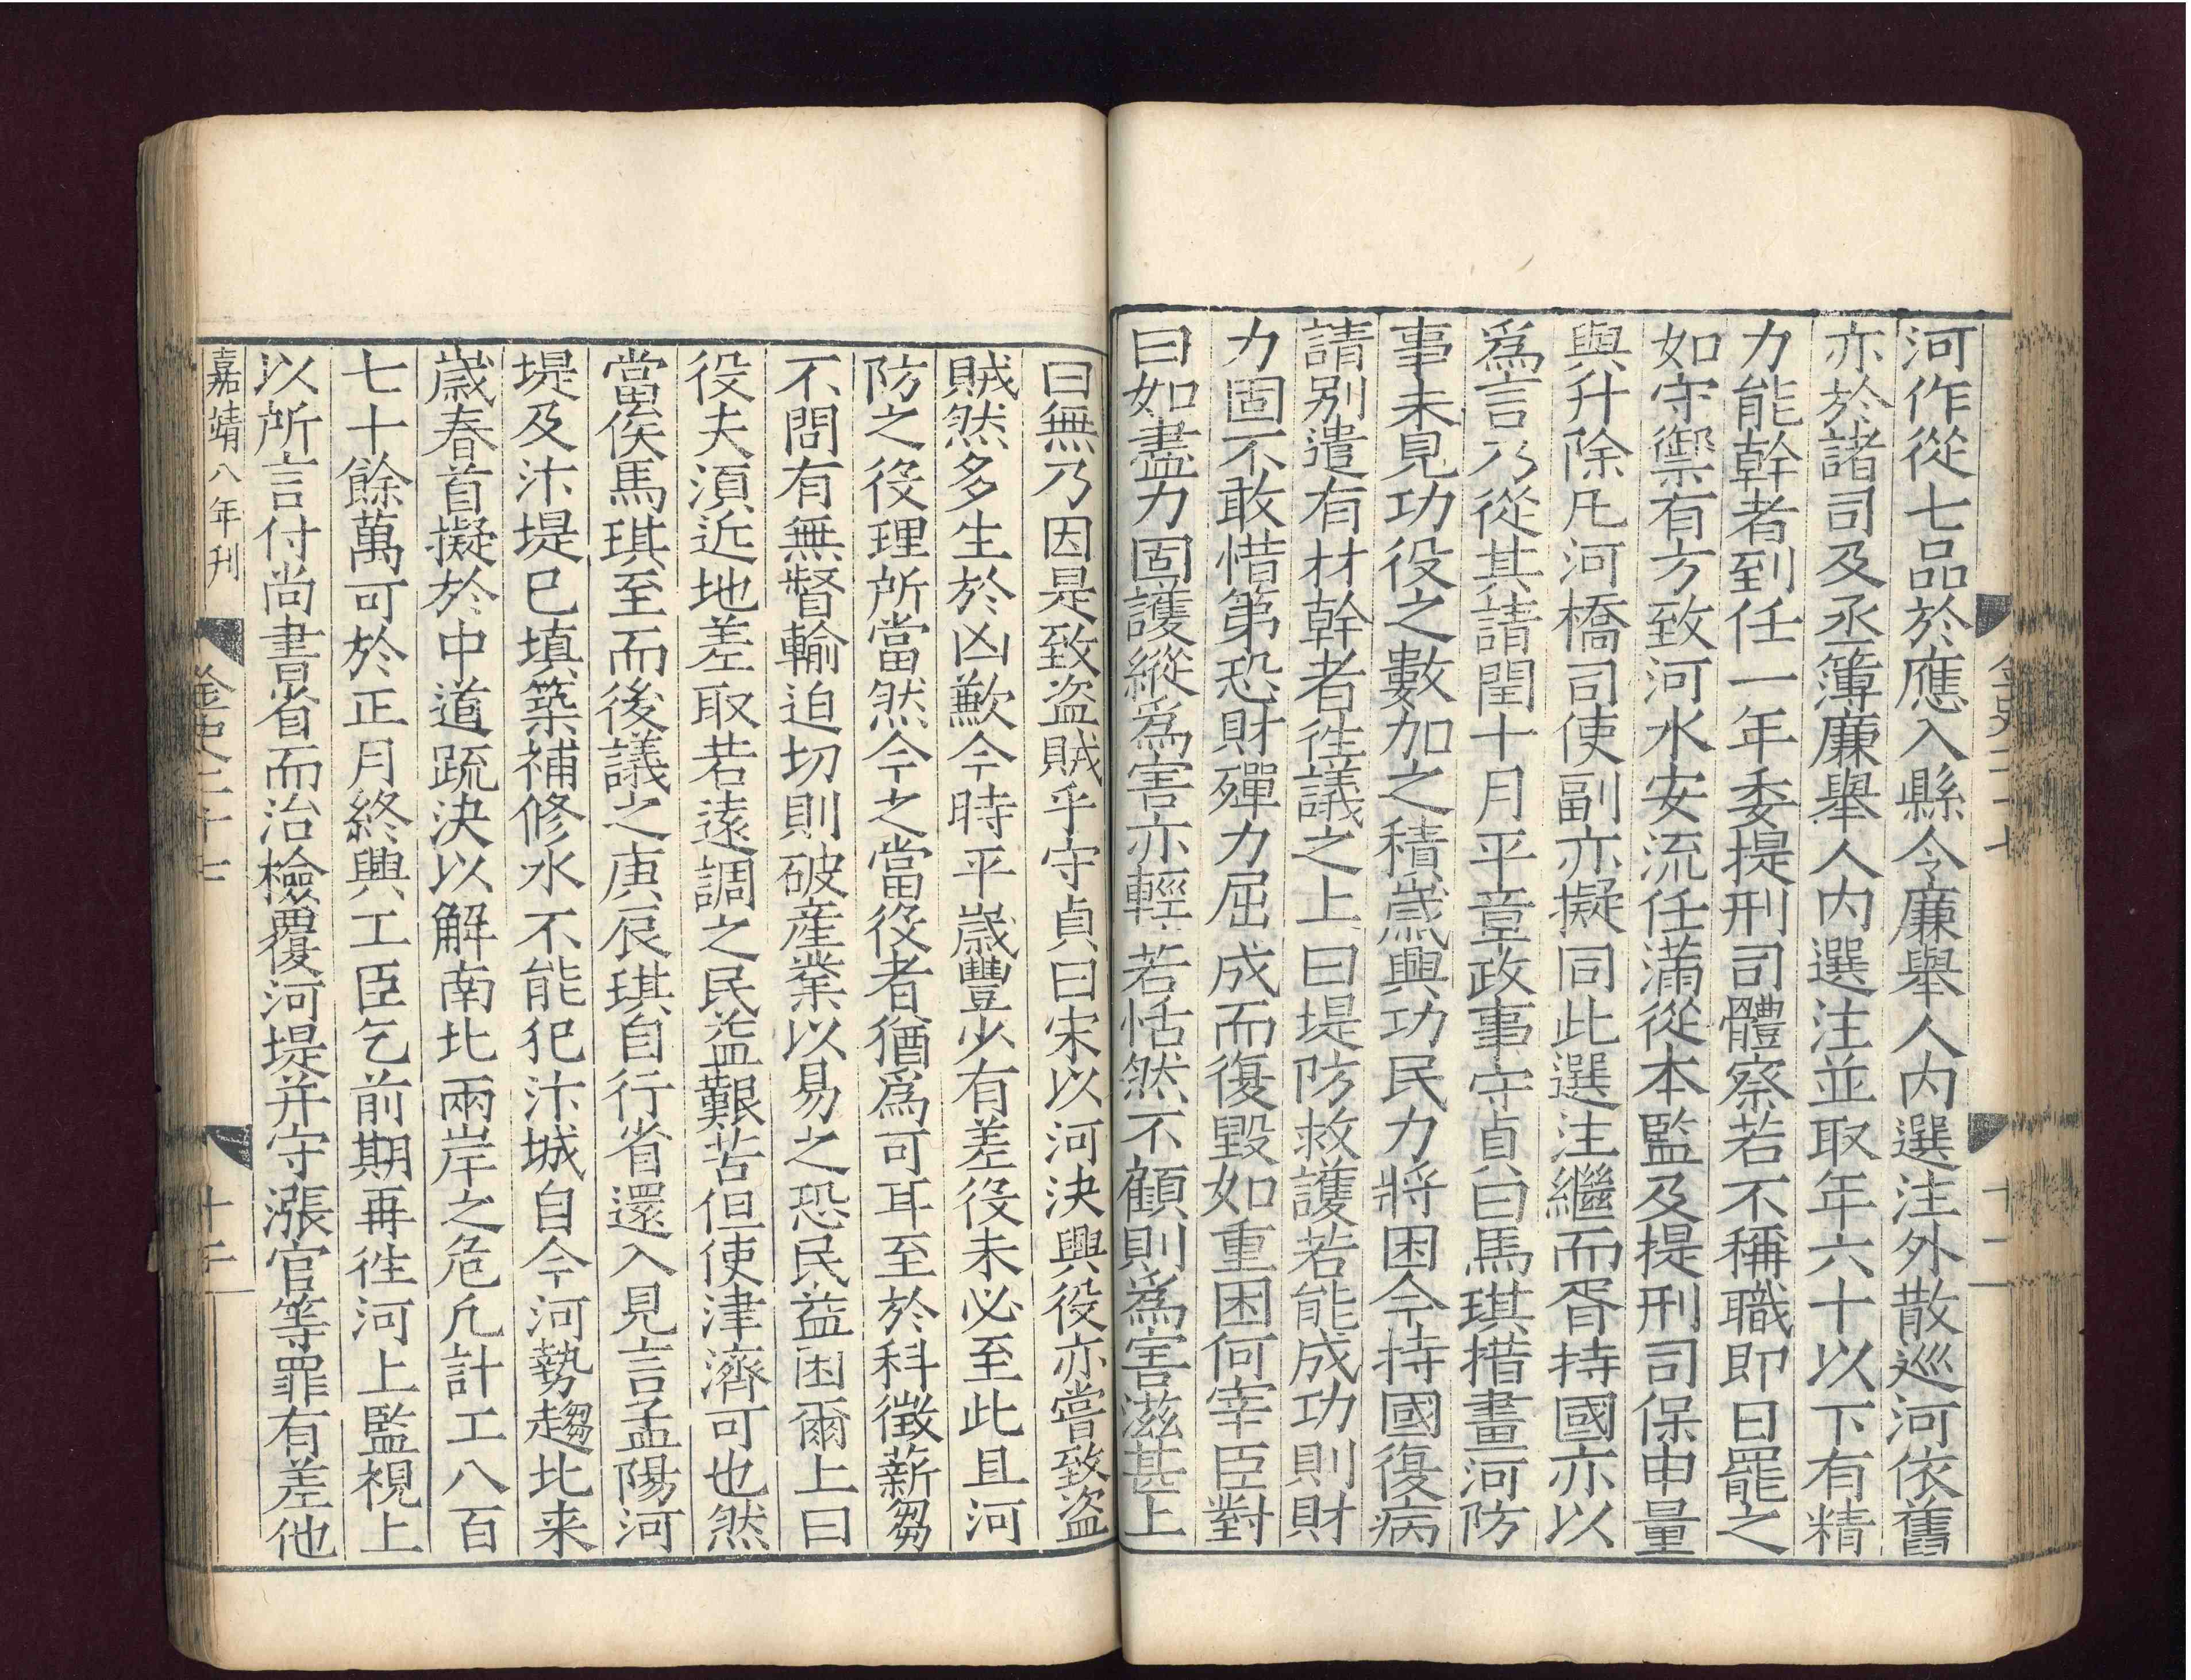 河作從七品於應入縣令廉舉人内選注外散巡河依舊
亦於諸司及丞簿廉舉人内選注並取年六十以下有精
力能幹者到任一年委提刑司體察若不稱職即日罷之
如守禦有方致河水安流任滿從本監及提刑司保申量
與升除凡河橋司使副亦擬同此選注繼而胥持國亦以
爲言乃從其請閏十月平章政事守貞曰馬琪措畫河防
事未見功役之數加之積歲興功民力將困今持國復病
請别遣有材幹者徃議之上曰堤防救護若能成功則財
力固不敢惜第恐財殫力屈成而復毀如重困何宰臣對
曰如盡力固護縱爲害亦輕若恬然不顧則爲害滋甚上
金史二十七
十二
曰無乃因是致盗賊乎守貞曰宋以河決興役亦嘗致盗
賊然多生於凶歉今時平歲豐少有差役未必至此且河
防之役理所當然今之當役者猶爲可耳至於科徴薪芻
不問有無督輸迫切則破産業以易之恐民益困爾上曰
役夫須近地差取若遠調之民益艱苦但使津濟可也然
當俟馬琪至而後議之庚辰琪自行省還入見言孟陽河
堤及汴堤巳填築補修水不能犯汴城自今河勢趨北来
歲春首擬於中道疏決以解南北兩岸之危凡計工八百
七十餘萬可於正月終興工臣乞前期再徃河上監視上
以所言付尚書省而治檢覆河堤并守漲官等罪有差他
嘉靖八年刊
金史二十七
十三